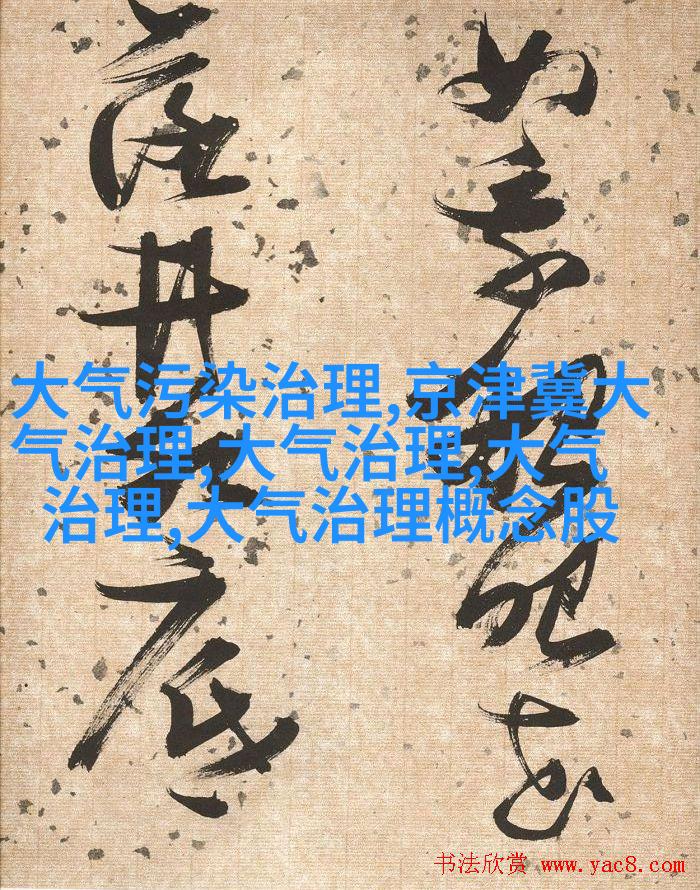 似乘船眼花
落井水底
大气污染治理,京津冀大
气治理,大气治理,大气
治理,大气治理概念股
书法欣赏 www.yac8.com